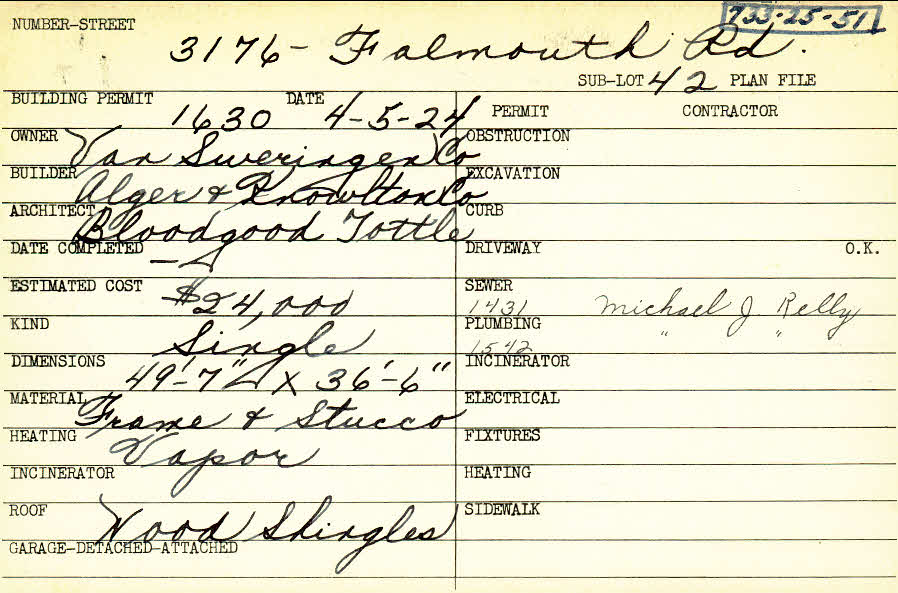 733-25-51
NUMBER-STREET
3176 - Falmouth Rd.
SUB-LOT 42 PLAN FILE
BUILDING PERMIT 1630 DATE 4-5-24
OWNER Van Sweringen Co
BUILDER Alger & Knowlton Co
ARCHITECT Bloodgood Tottle
DATE COMPLETED —
ESTIMATED COST $24,000
KIND Single
DIMENSIONS 49'-7" x 36'-6"
MATERIAL Frame & Stucco
HEATING Vapor
INCINERATOR
ROOF Wood Shingles
GARAGE-DETACHED-ATTACHED
PERMIT CONTRACTOR
OBSTRUCTION
EXCAVATION
CURB
DRIVEWAY O.K.
SEWER
1431 Michael J. Kelly
PLUMBING " "
1542
INCINERATOR
ELECTRICAL
FIXTURES
HEATING
SIDEWALK